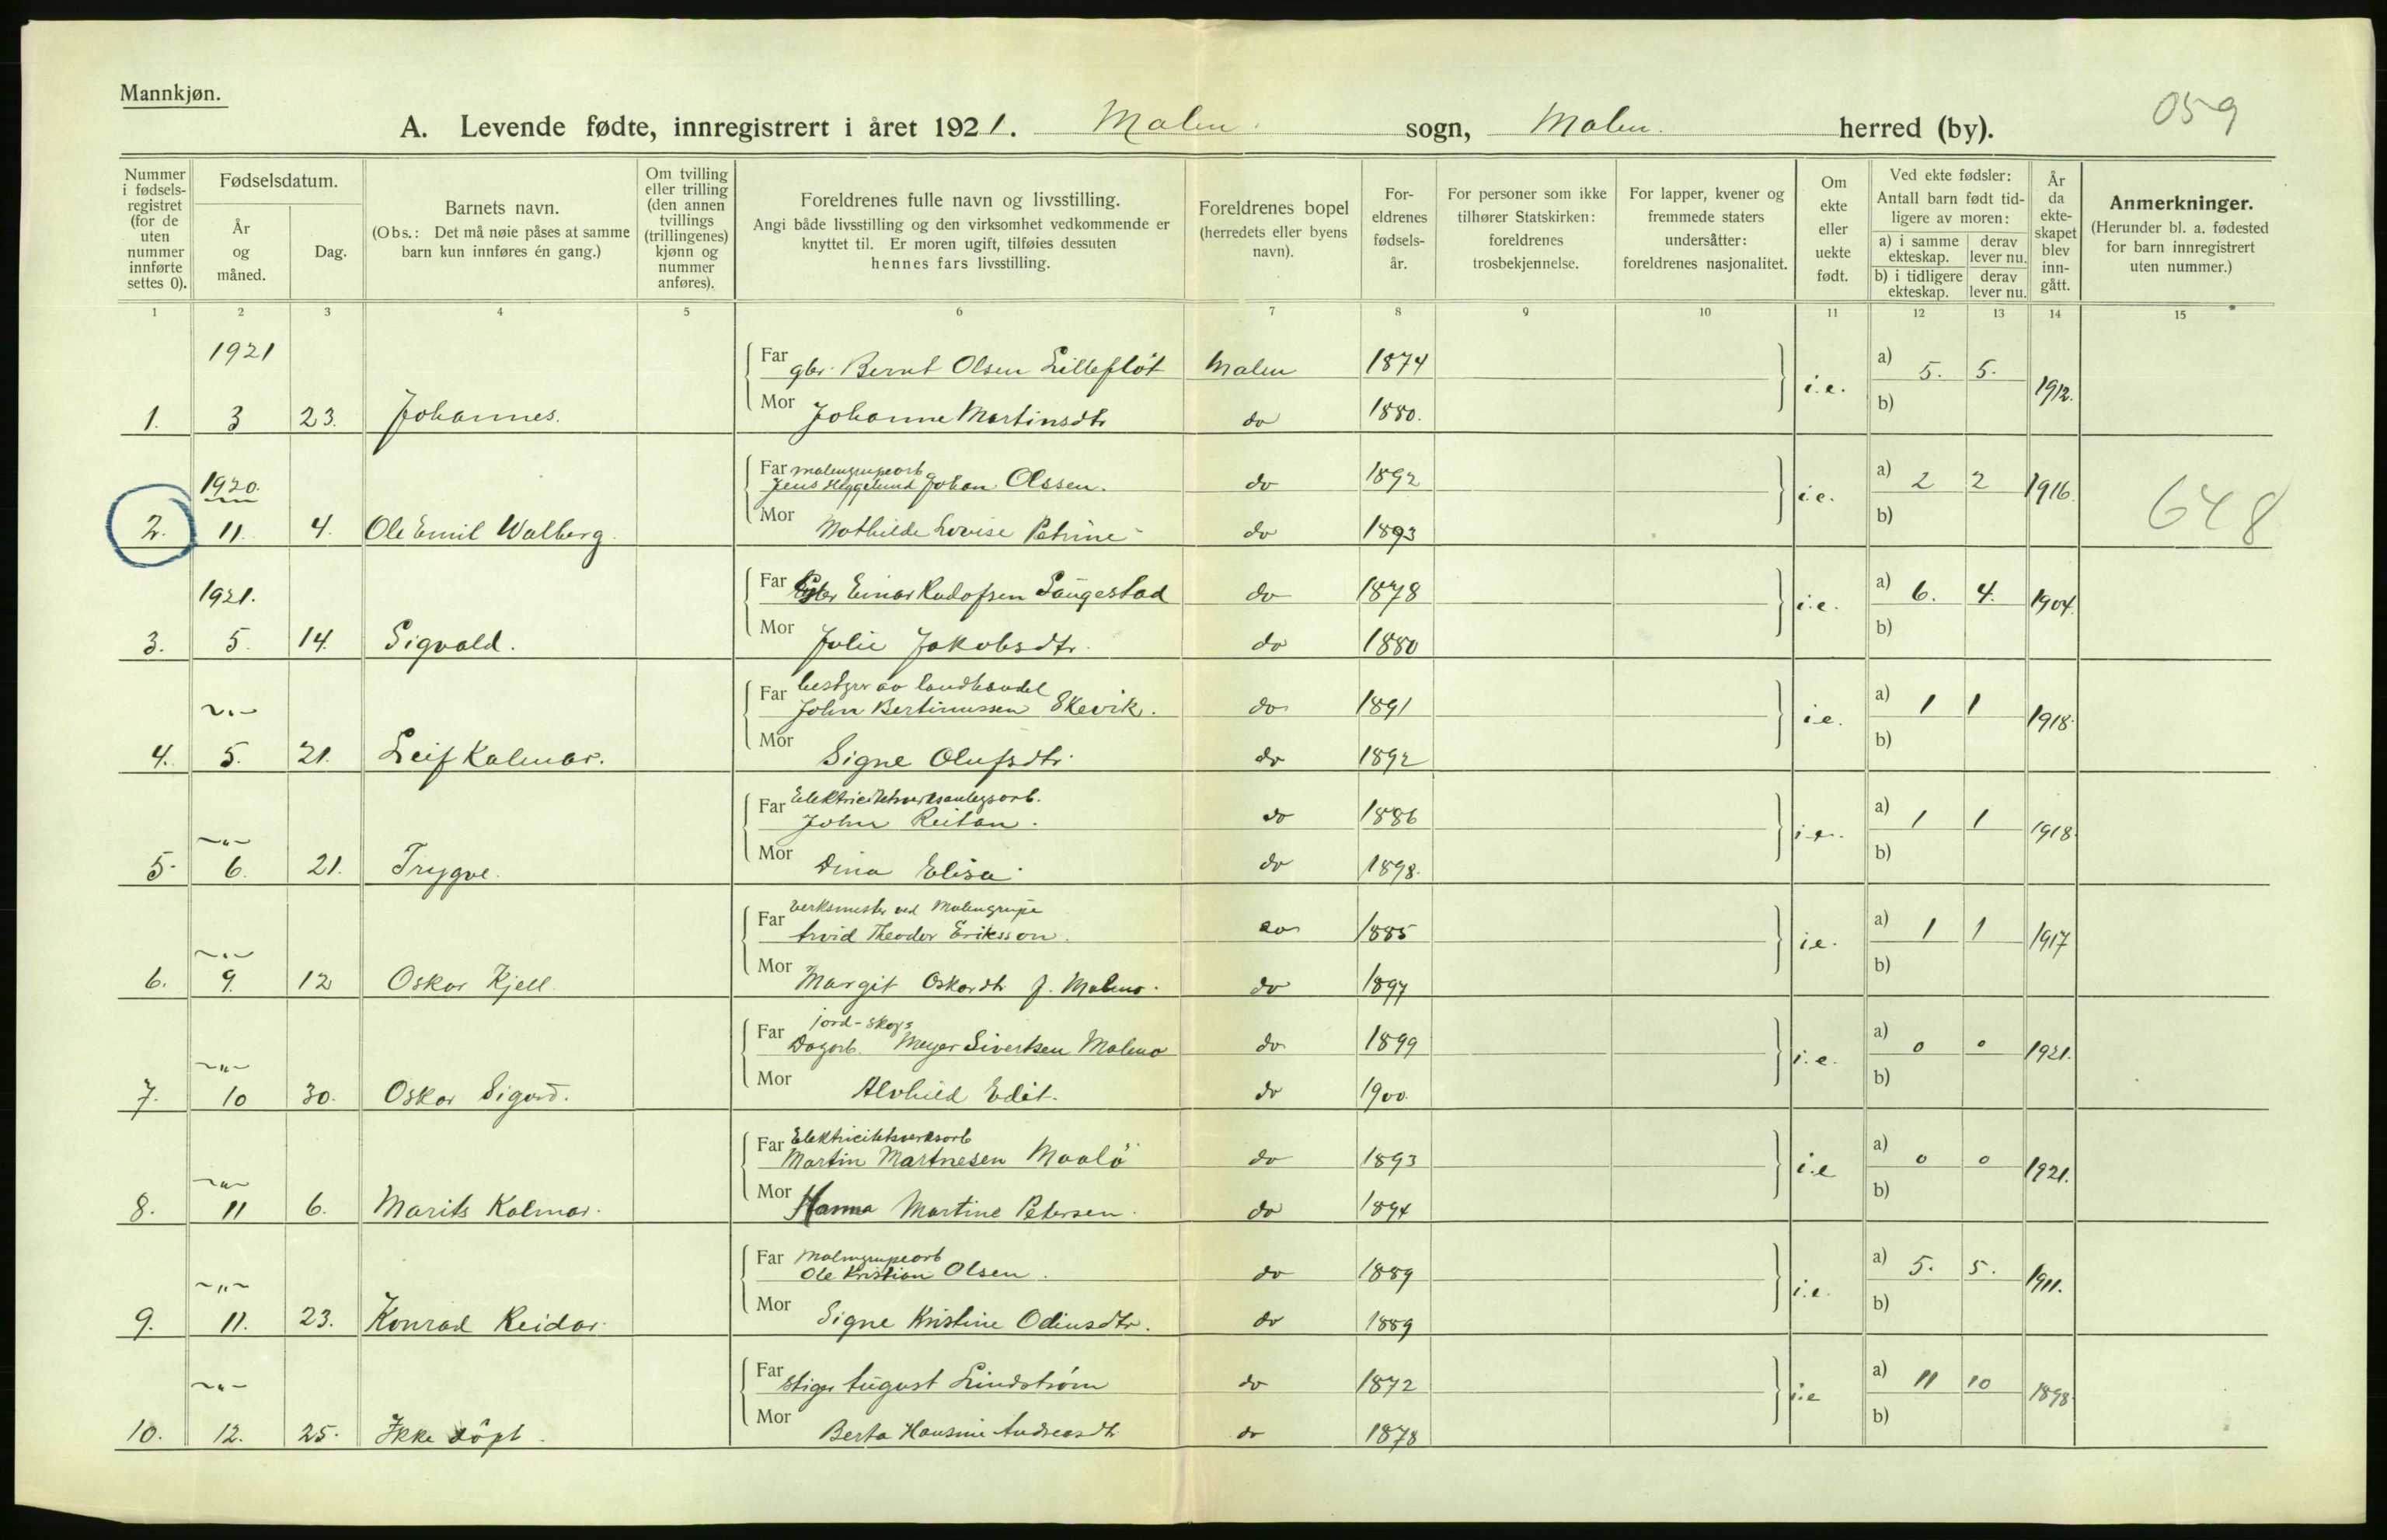 Mannkjøn.
059
A. Levende fødte, innregistrert i året 1921. Malm. sogn, Malm. herred (by).
Nummer i fødsels-registret (for de uten nummer innførte settes 0).
Fødselsdatum.
År og måned.
Dag.
Barnets navn.
(Obs.: Det må nøie påses at samme barn kun innføres én gang.)
Om tvilling eller trilling (den annen tvillings (trillingenes) kjønn og nummer anføres).
Foreldrenes fulle navn og livsstilling.
Angi både livsstilling og den virksomhet vedkommende er knyttet til. Er moren ugift, tilføies dessuten hennes fars livsstilling.
Foreldrenes bopel (herredets eller byens navn).
For-eldrenes fødsels-år.
For personer som ikke tilhører Statskirken: foreldrenes trosbekjennelse.
For lapper, kvener og fremmede staters undersåtter: foreldrenes nasjonalitet.
Om ekte eller uekte født.
Ved ekte fødsler:
Antall barn født tid-ligere av moren:
a) i samme ekteskap.
derav lever nu.
b) i tidligere ekteskap.
derav lever nu.
År da ekte-skapet blev inn-gått.
Anmerkninger.
(Herunder bl. a. fødested for barn innregistrert uten nummer.)
1 2 3 4 5 6 7 8 9 10 11 12 13 14 15
1921
Far gbr. Bernt Olsen Lilleflöt Malm 1874 i.e. a) 5. 5. 1912.
1. 3 23. Johannes. Mor Johanne Martinsdtr do 1880. b)
1920.
Far malmgrupearb
Jens Heggelund Johan Olssen. do 1892 i.e. a) 2 2 1916. 648
2. 11. 4. Ole Emil Walberg. Mor Mathilde Lovise Petrine do 1893 b)
1921.
Far gbr Einar Rudofsen Saugestad do 1878 i.e. a) 6. 4. 1904.
3. 5. 14. Sigvald. Mor Julie Jakobsdtr. do 1880 b)
Far bestyrer av landhandel
~"~ John Bertinussen Skevik. do 1891 i.e. a) 1 1 1918.
4. 5. 21. Leif Kalmar. Mor Signe Olufsdtr. do 1892 b)
Far Elektricitetsverksanlegsarb.
~"~ John Reitan. do 1886 i.e. a) 1 1 1918.
5. 6. 21. Trygve. Mor Dina Elisa do 1898. b)
Far Verksmester ved Malmgrupe
~"~ Arvid Theodor Eriksson. do 1885 i.e. a) 1 1 1917
6. 9. 12 Oskar Kjell. Mor Margit Oskardtr f. Malmo. do 1897 b)
Far jord-skogs
~"~ Dagarb. Meyer Sivertsen Malmo do 1899 i.e. a) 0 0 1921.
7. 10 30. Oskar Sigurd. Mor Alvhild Edit. do 1900. b)
Far Elektricitetsverksarb
~"~ Martin Martnesen Maalö do 1893 i.e a) 0 0 1921.
8. 11 6. Marits Kalmar. Mor Hanna Martine Petersen. do 1894 b)
Far Malmgrupearb
~"~ Ole Kristian Olsen. do 1889 i.e. a) 5. 5. 1911.
9. 11. 23. Konrad Reidar. Mor Signe Kristine Odinsdtr. do 1889 b)
~"~ Far stiger August Lindström do 1872 i.e a) 11 10 1898.
10. 12. 25. Ikke döpt. Mor Berta Hansine Andreasdtr do 1878 b)